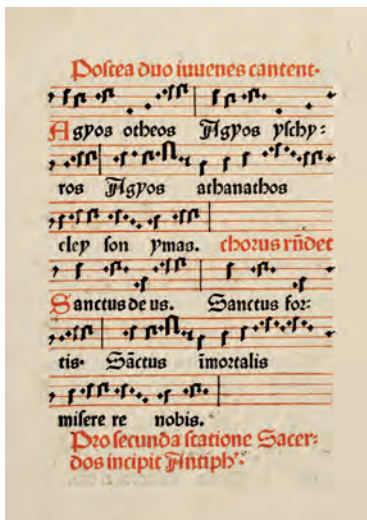 Postea duo iuuenes cantent·
Agyos otheos Agyos yschy:
ros Agyos athanathos
eley son ymas. chorus rñdet
Sanctus de us. Sanctus for:
tis· Sāctus īmortalis
misere re nobis.
Pro secunda statione Sacer:
dos incipit Antiph'·